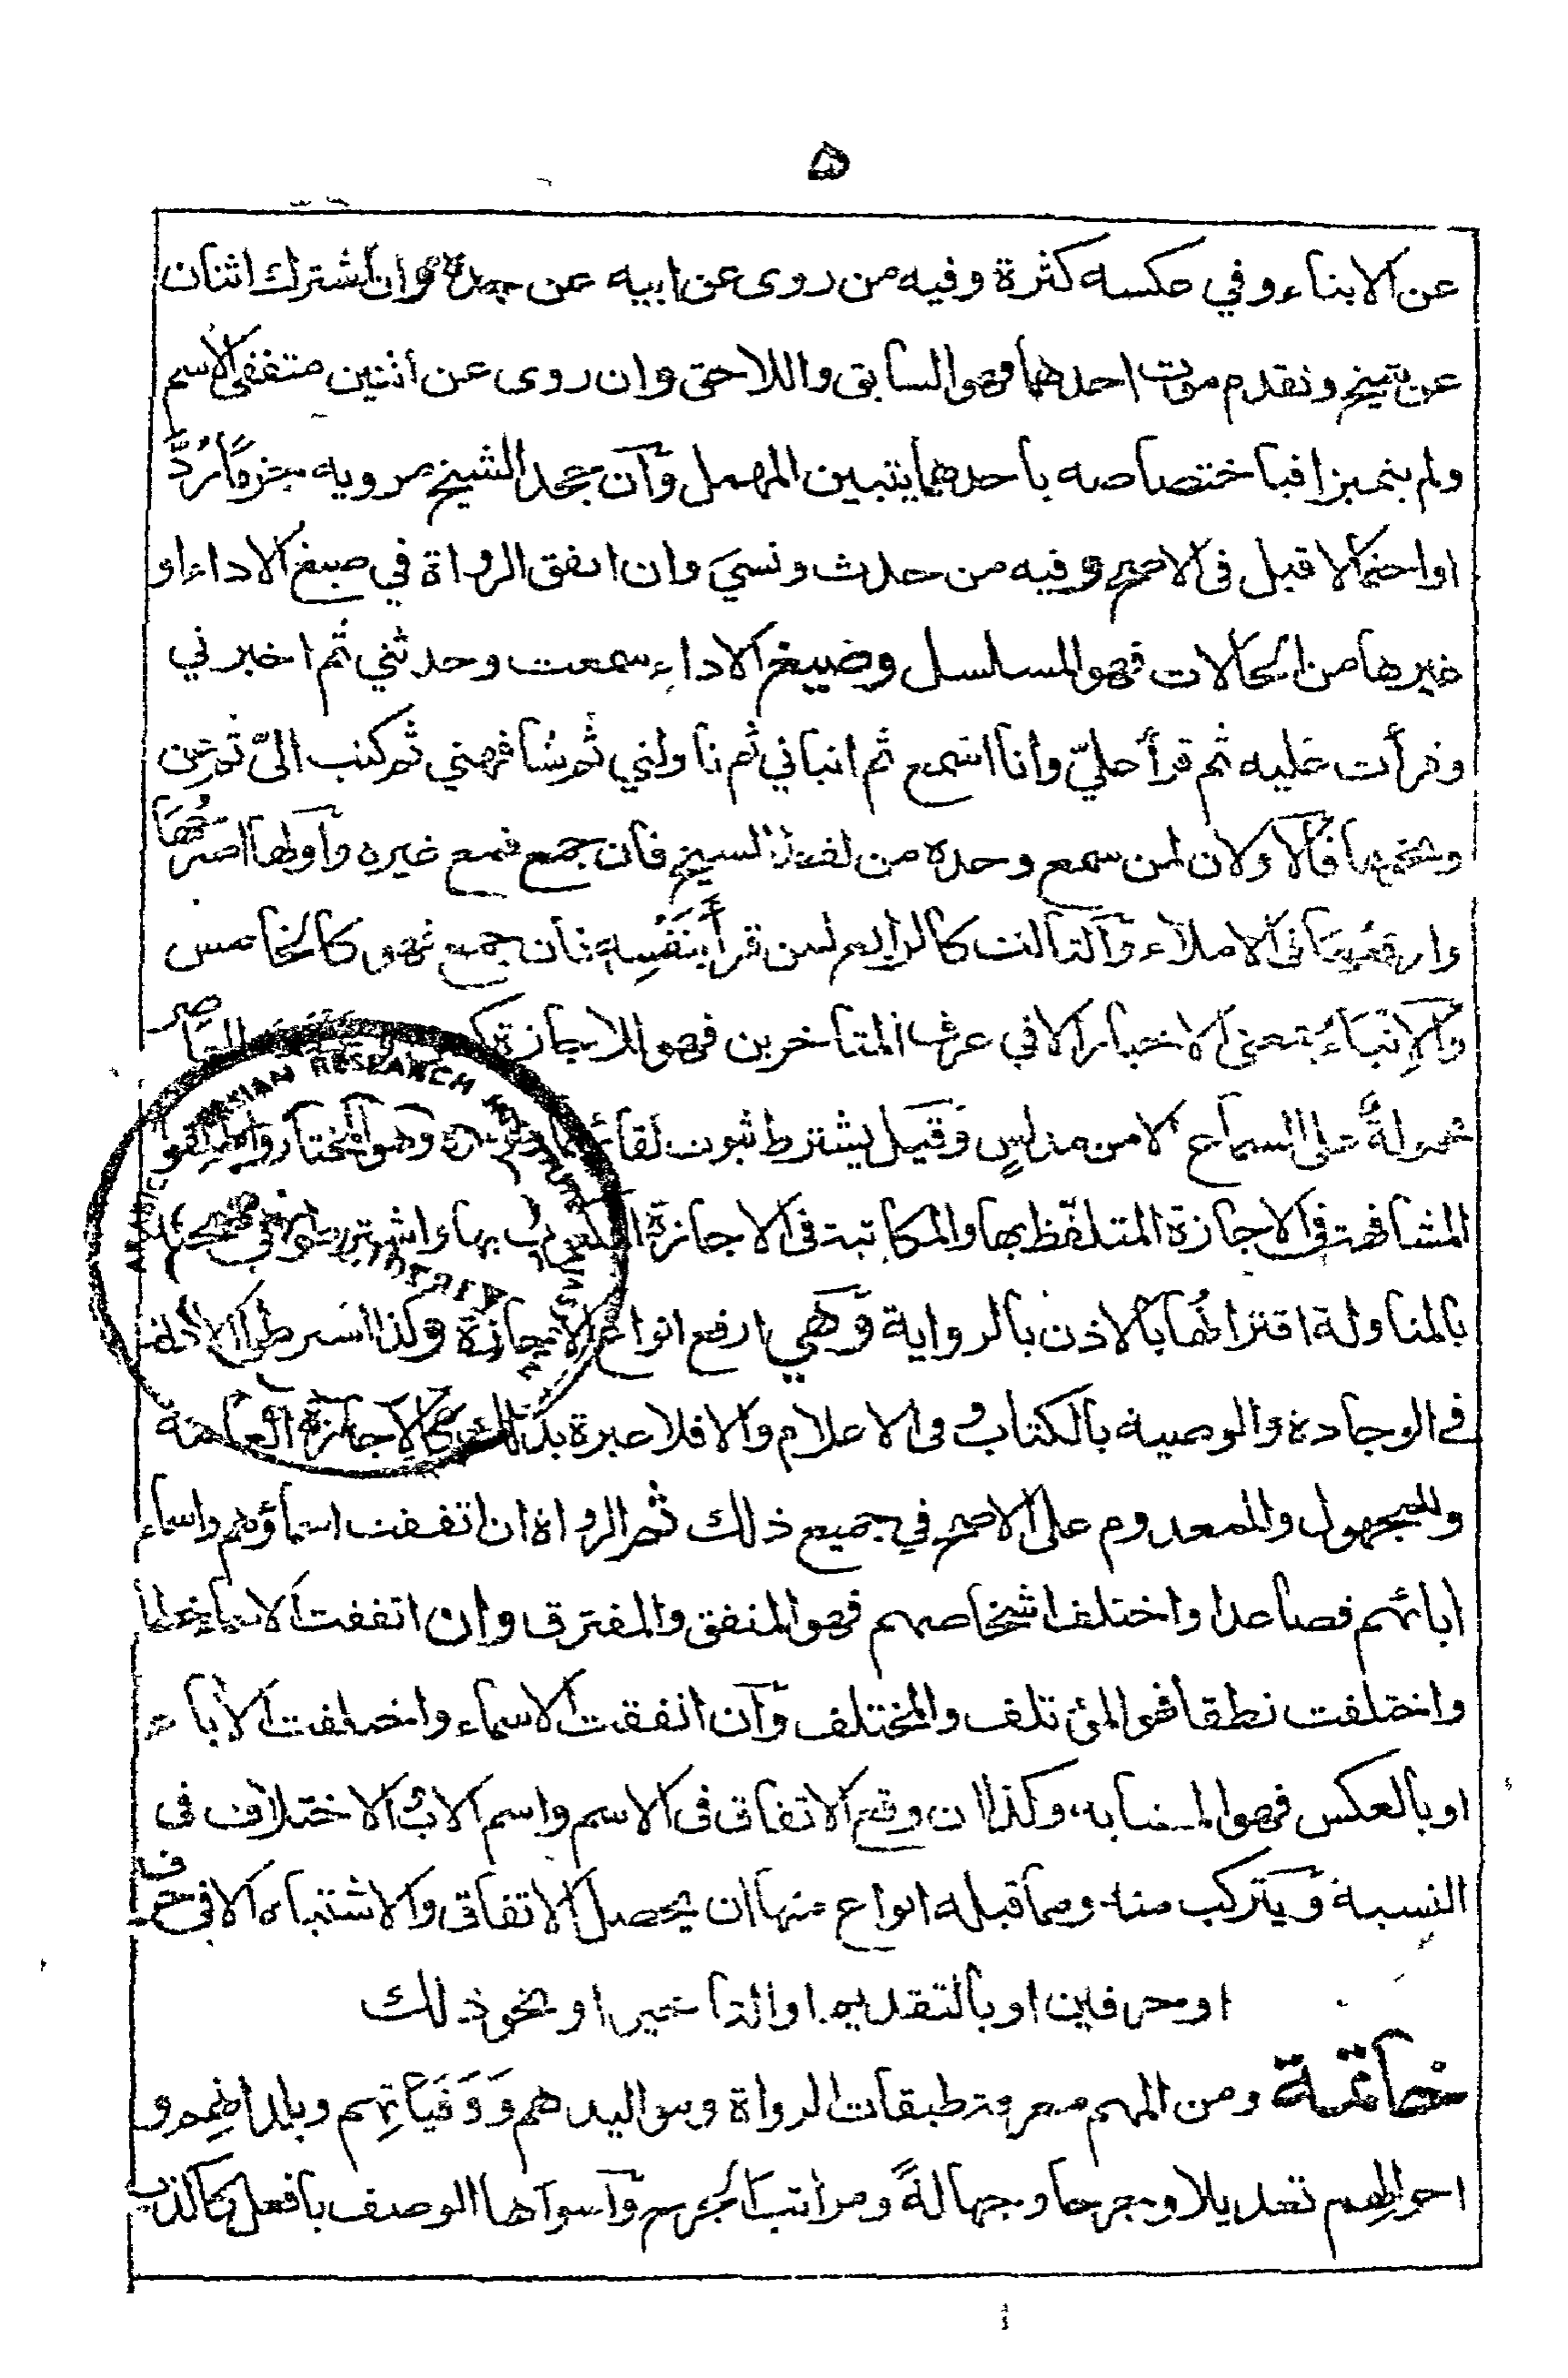 ۵
عن الابناء وفي عكسه كثرة وفيه من روى عن ابيه عن جده وان اشترك اثنان
عن شيخ وتقدم موت احدهما فهو السابق واللاحق وان روى عن اثنين متفقي الاسم
ولم يتميزا فباختصاصه باحدهما يتبين المهمل وان جحد الشيخ مرويه جزمًا رُدَّ
او احتمالا قبل في الاصح وفيه من حدث ونسيَ وان اتفق الرواة في صيغ الاداء او
غيرها من الحالات فهو المسلسل وصيغ الاداء سمعت وحدثني ثم اخبرني
وقرأت عليه ثم قرأ عليّ وانا اسمع ثم انباني ثم ناولني ثم شافهني ثم كتب اليّ ثم عن
ونحوها فالاولان لمن سمع وحده من لفظ الشيخ فان جمع فمع غيره واولها اصرحُها
وارفعها في الاملاء والثالث كالرابع لمن قرأ بنَفْسِهٖ فان جمع فهو كالخامس
والاِنْبَاءُ بمعنى الاخبار الا في عرف المتاخرين فهو للاجازة كعن وعنعنة المعاصر
محمولةٌ على السماع الا من مدلسٍ وقيل يشترط ثبوت لقائهما ولو مرة وهو المختار واطلقوا
المشافهة في الاجازة المتلفَّظ بها والمكاتبة في الاجازة المكتوب بها واشترطوا في صحة
بالمناولة اقترانُها بالاذن بالرواية وَهي ارفع انواع الاجازة وكذا اشترطوا الاذن
في الوجادة والوصية بالكتاب وفي الاعلام والا فلا عبرة بذلك كالاجازة العامة
وللمجهول وللمعدوم على الاصح في جميع ذلك ثم الرواة ان اتفقت اسماؤهم واسماء
ابائهم فصاعدا واختلف اشخاصهم فهو المتفق والمفترق وان اتفقت الاسماء خطا
واختلفت نطقا فهو المؤتلف والمختلف وان اتفقت الاسماء واختلفت الآباء
او بالعكس فهو المتشابه، وكذا ان وقع الاتفاق في الاسم واسم الاب والاختلاف في
النسبة ويتركب منه ومما قبله انواع منها ان يحصل الاتفاق والاشتباه الا في حرف
او حرفين او بالتقديم او التاخير او نحو ذلك
خاتمة ومن المهم معرفة طبقات الرواة ومواليدهم وَوَفَيَاتِهم وبلدانهم و
احوالهم تعديلا وجرحا وجهالةً ومراتب الجرح واسوأها الوصف بافعل كاكذب